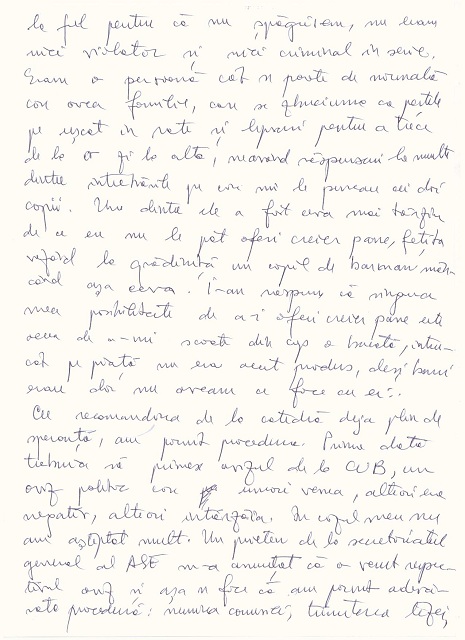 la fel pentru că nu șpăguisem, nu eram
nici violator și nici criminal in serie.
Eram o persoană cât se poate de normală
con avea familie, care se zbuciuma ca peștele
pe uscat in rate și lipsuri pentru a trece
de la o zi la alta, neavând răspunsuri la multe
dintre intrebările pe care mi le puneau cei doi
copii. Una dintre ele a fost ceva mai târziu
de ce eu nu le pot oferi creier pane, fetița
văzând la grădiniță un copil de barman mân-
când așa ceva. I-am răspuns că singura
mea posibilitate de a-i oferi creier pane este
aceea de a-mi scoate din cap o bucată, intru-
cât pe piață nu era acest produs, deși banii
erau doi, nu aveam ce face cu ei.
Cu recomandarea de la catedră deja plin de
speranță, am pornit procedura. Prima dată
trebuia să primex avizul de la CUB, un
aviz politic con unori venea, alteori era
negativ, alteori intârzia. In cazul meu nu
am așteptat mult. Un prieten de la secretariatul
general al ASE m-a anunțat că a venit respec-
tivul aviz și așa se face că am pornit adevă-
rata procedură: numirea comisiei, trimiterea tezei,